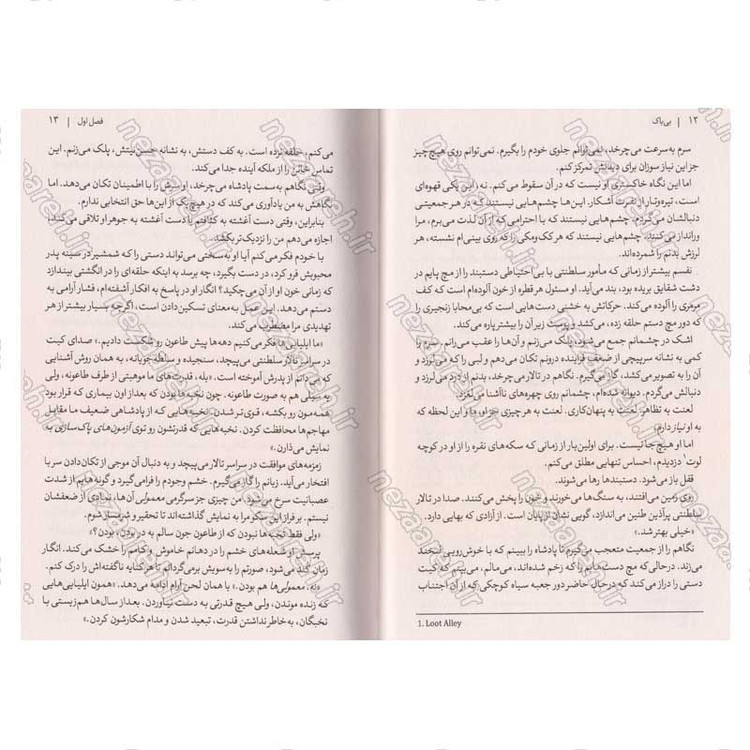 ۱۲ | بی‌باک
سرم به‌سرعت می‌چرخد، نمی‌توانم جلوی خودم را بگیرم. نمی‌توانم روی هیچ چیز
جز این نیاز سوزان برای دیدنش تمرکز کنم.
اما این نگاه خاکستری او نیست که در آن سقوط می‌کنم. نه، این یکی قهوه‌ای
است، تیره‌تر از نفرت آشکار. این‌ها چشم‌هایی نیستند که در هر جمعیتی
دنبالشان می‌گردم. چشم‌هایی نیستند که با احترامی که از آن لذت می‌برم، مرا
ورانداز می‌کنند. چشم‌هایی نیستند که هر کک‌ومکی را که روی بینی‌ام نشسته، هر
لرزش بدنم را شمرده‌اند.
نفسم بیشتر از زمانی که مأمور سلطنتی با بی‌احتیاطی دستبند را از مچ پایم در
دشت شقایق بریده بود، بند می‌آید. او مسئول هر قطره از خون آلوده‌ام است که کف
مرمری را آلوده می‌کند. حرکاتش به خشنی دست‌هایی است که بی‌محابا زنجیری را
که دور مچ دستم حلقه زده، می‌کشد و پوست زیر آن را بیشتر پاره می‌کند.
اشک در چشمانم جمع می‌شود، پلک می‌زنم و آن‌ها را عقب می‌رانم. سرم را
کمی به نشانه سرپیچی از ضعف فزاینده درونم تکان می‌دهم و لبی را که می‌لرزد و
آن را به تصویر می‌کشد، گاز می‌گیرم. نگاهم در تالار می‌چرخد، بدنم از درد می‌لرزد و
دنبال او می‌گردم. دیوانه شده‌ام، چشمانم روی چهره‌های ناآشنا می‌لغزد.
لعنت به تظاهر. لعنت به پنهان‌کاری. لعنت به هر چیزی جز او، ما و این لحظه که
به او نیاز دارم.
اما او هیچ‌جا نیست. برای اولین‌بار از زمانی که سکه‌های نقره را از او در کوچه
لوت¹ دزدیدم، احساس تنهایی مطلق می‌کنم.
قفل باز می‌شود. دستبندها رها می‌شوند.
روی زمین می‌افتند، به سنگ‌ها می‌خورند و خون را پخش می‌کنند. صدا در تالار
سلطنتی پرآذین طنین می‌اندازد، گویی نشان از پایان است. از آزادی که بهایی دارد.
«خیلی بهتر شد.»
نگاهم را از جمعیت متعجب می‌گیرم تا پادشاه را ببینم که با خوش‌رویی لبخند
می‌زند. درحالی‌که مچ دست‌هایم را که زخم شده‌اند، می‌مالم، می‌بینم که کیت
دستی را دراز می‌کند که درحال حاضر دور جعبه سیاه کوچکی که از آن اجتناب
1. Loot Alley
فصل اول | ۱۳
می‌کنم، حلقه نزده است. به کف دستش، به نشانه حسن‌نیتش، پلک می‌زنم. این
تماس خائن را از ملکه آینده جدا می‌کند.
وقتی نگاهم به‌سمت پادشاه می‌چرخد، او سرش را با اطمینان تکان می‌دهد. اما
نگاهش به من یادآوری می‌کند که در هیچ‌یک از این‌ها حق انتخابی ندارم.
بنابراین، وقتی دست آغشته به کثافتم با دست آغشته به جوهر او تلاقی می‌کند،
اجازه می‌دهم من را نزدیک‌تر بکشد.
با خودم فکر می‌کنم آیا او به‌سختی می‌تواند دستی را که شمشیر در سینه پدر
محبوبش فرو کرد، در دست بگیرد، چه برسد به اینکه حلقه‌ای را در انگشتی بیندازد
که زمانی خون او از آن می‌چکید؟ انگار او در پاسخ به افکار آشفته‌ام، فشار آرامی به
دستم می‌دهد. این عمل به‌معنای تسکین‌دادن است، اگرچه بسیار بیشتر از هر
تهدیدی مرا مضطرب می‌کند.
«ما ایلیایی‌ها فکر می‌کنیم دهه‌ها پیش طاعون رو شکست دادیم.» صدای کیت
در سراسر تالار سلطنتی می‌پیچد، سنجیده و سلطه‌جویانه، به همان روش آشنایی
که می‌دانم از پدرش آموخته است. «بله، قدرت‌های ما موهبتی از طرف طاعونه، ولی
یه سیلی هم به صورت طاعونه. چون نخبه‌ها بودن که بعد از اون بیماری که قرار بود
همه‌مون رو بکشه، قوی‌تر شدن. نخبه‌هایی که از پادشاهی ضعیف ما مقابل
مهاجم‌ها محافظت کردن. نخبه‌هایی که قدرتشون رو توی آزمون‌های پاک‌سازی به
نمایش می‌ذارن.»
زمزمه‌های موافقت در سراسر تالار می‌پیچد و به دنبال آن موجی از تکان‌دادن سر با
افتخار می‌آید. زبانم را گاز می‌گیرم. خشم وجودم را فرامی‌گیرد و گونه‌هایم از شدت
عصبانیت سرخ می‌شود. من چیزی جز سرگرمی معمولی آن‌ها، نمادی از ضعفشان
نیستم. بر فراز این سکو مرا به نمایش گذاشته‌اند تا تحقیر و شرمسار شوم.
«ولی فقط نخبه‌ها نبودن که از طاعون جون سالم به در بردن، بودن؟»
پرسش او شعله‌های خشم را در دهانم خاموش و کامم را خشک می‌کند. انگار
زمان کند می‌شود، صورتم را به‌سویش برمی‌گردانم تا هر کنایه ناگفته‌اش را درک کنم.
«نه، معمولی‌ها هم بودن.» با همان لحن آرام ادامه می‌دهد. «همون ایلیایی‌هایی
که زنده موندن، ولی هیچ قدرتی به دست نیاوردن. بعد از سال‌ها هم‌زیستی با
نخبگان، به‌خاطر نداشتن قدرت، تبعید شدن و مدام شکارشون کردن.»
nezaareh.ir